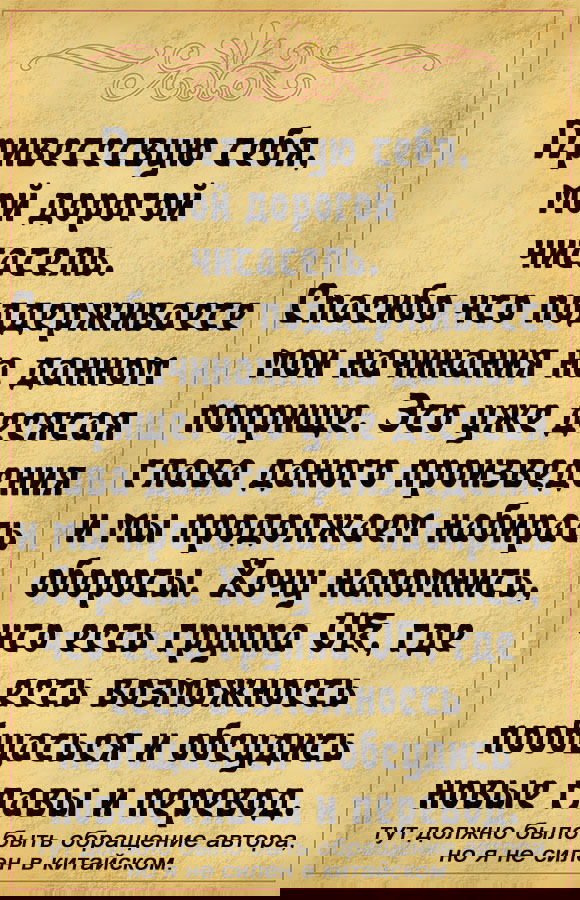 Приветствую тебя,
мой дорогой
читатель.
Спасибо что поддерживаете
мои начинания на данном
поприще. Это уже десятая
глава даного произведения
и мы продолжаем набирать
обороты. Хочу напомнить,
что есть группа VK, где
есть возможность
пообщаться и обсудить
новые главы и перевод.
тут должно было быть обращение автора,
но я не силен в китайском.